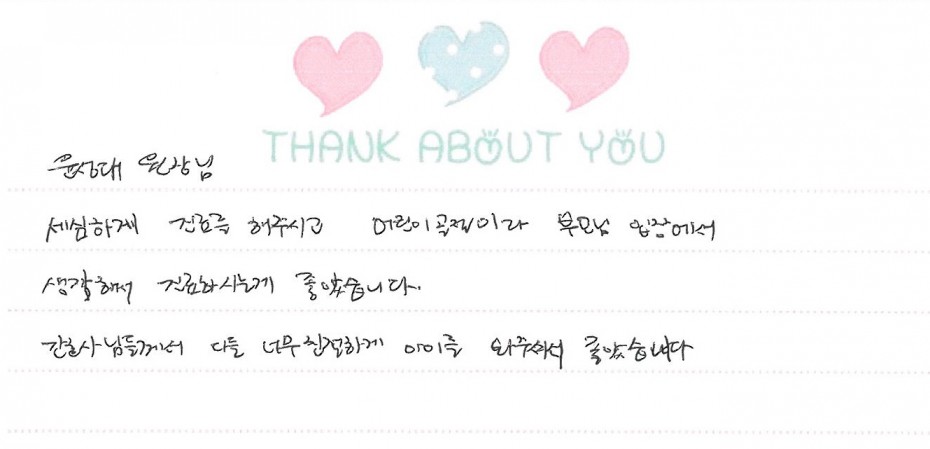 THANK ABOUT YOU
윤성대 원장님
세심하게 진료를 해주시고 어린이골절이라 부모님 입장에서
생각해서 진료하시는게 좋았습니다.
간호사님들께서 다들 너무친절하게 아이를 봐주셔서 좋았습니다